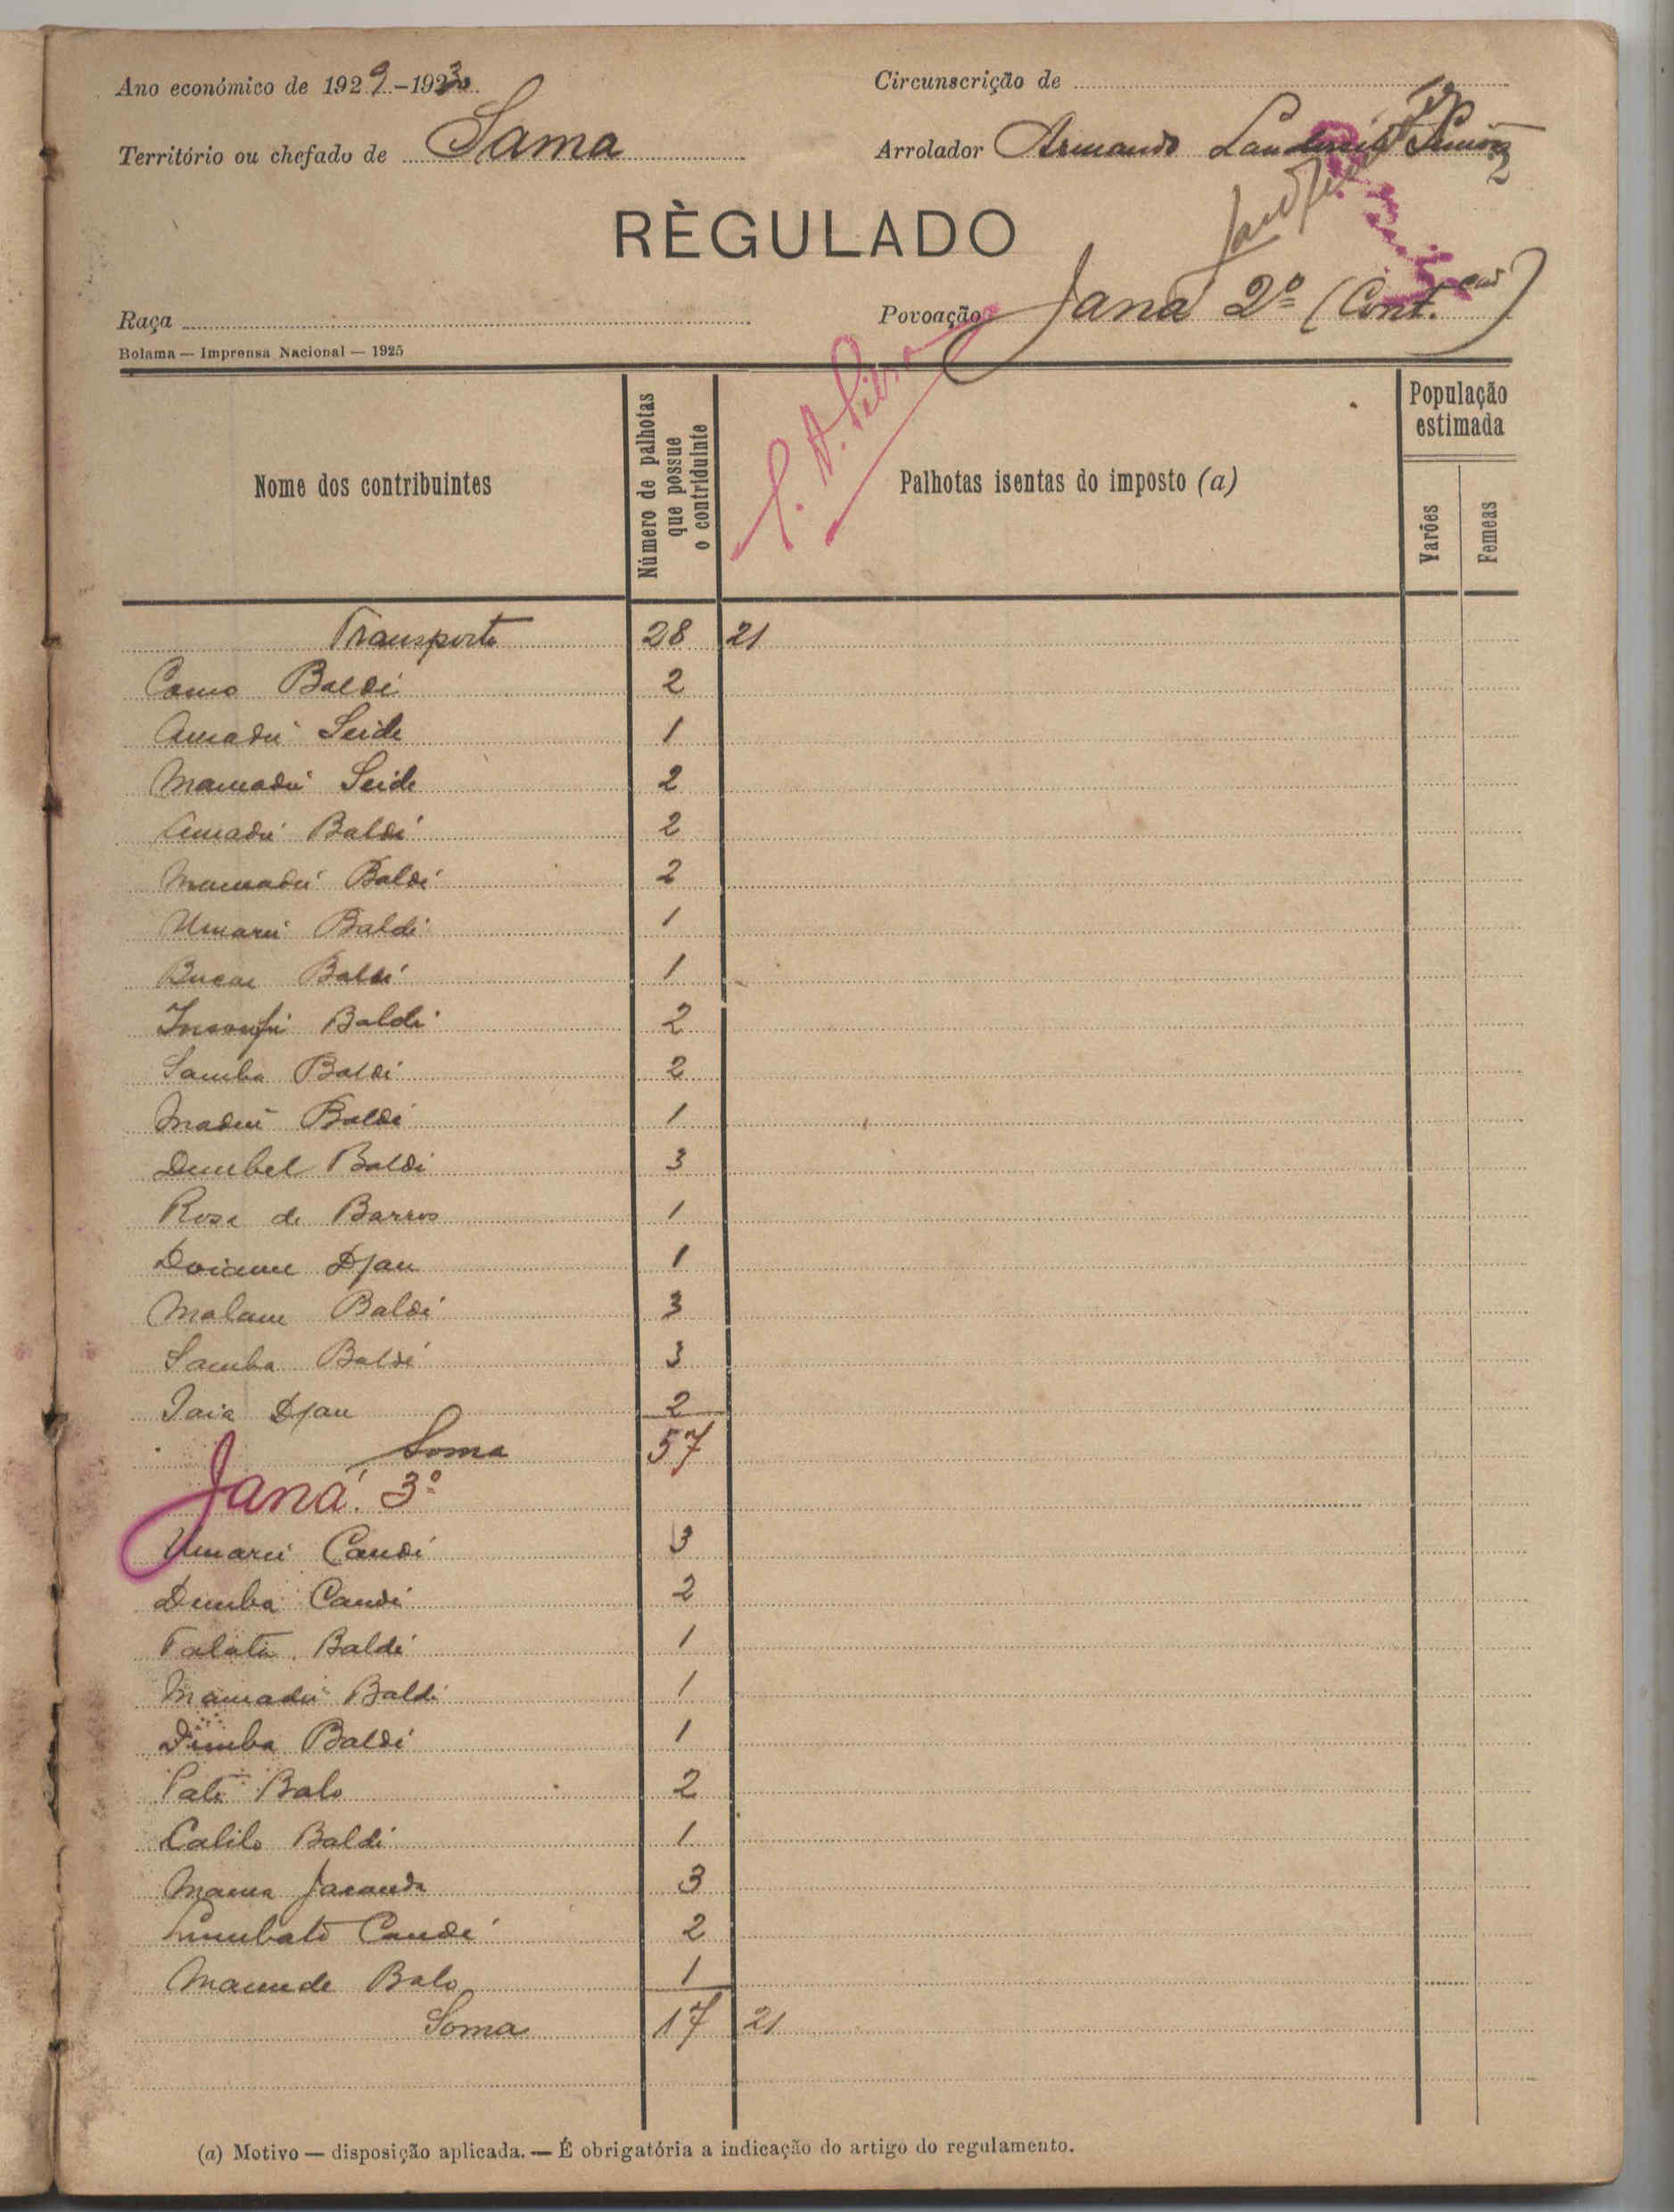 Ano económico de 1929-1930
Circunscrição de
Território ou chefado de Sama
Arrolador Armando
RÈGULADO
Raça
Povoação Janá 2º (Cont.)
Bolama — Imprensa Nacional — 1925
Nome dos contribuintes
Número de palhotas que possue o contriduinte
Palhotas isentas do imposto (a)
População estimada
Varões
Femeas
Transporte 28 21
Como Baldé 2
Amadú Seide 1
Mamadú Seide 2
Amadú Baldé 2
Mamadú Baldé 2
Umarú Baldé 1
Bucar Baldé 1
Baldé 2
Samba Baldé 2
Madiú Baldé 1
Dembel Baldé 3
Rosa de Barros 1
Djau 1
Malam Baldé 3
Samba Baldé 3
Iaia Djau 2
Soma 57
Janá 3º
Umarú Candé 3
Demba Candé 2
Talata Baldé 1
Mamadú Baldé 1
Demba Baldé 1
Paté Balo 2
Calilo Baldé 1
Mama Jacanda 3
Candé 2
Mamude Balo 1
Soma 17 21
(a) Motivo — disposição aplicada. — É obrigatória a indicação do artigo do regulamento.